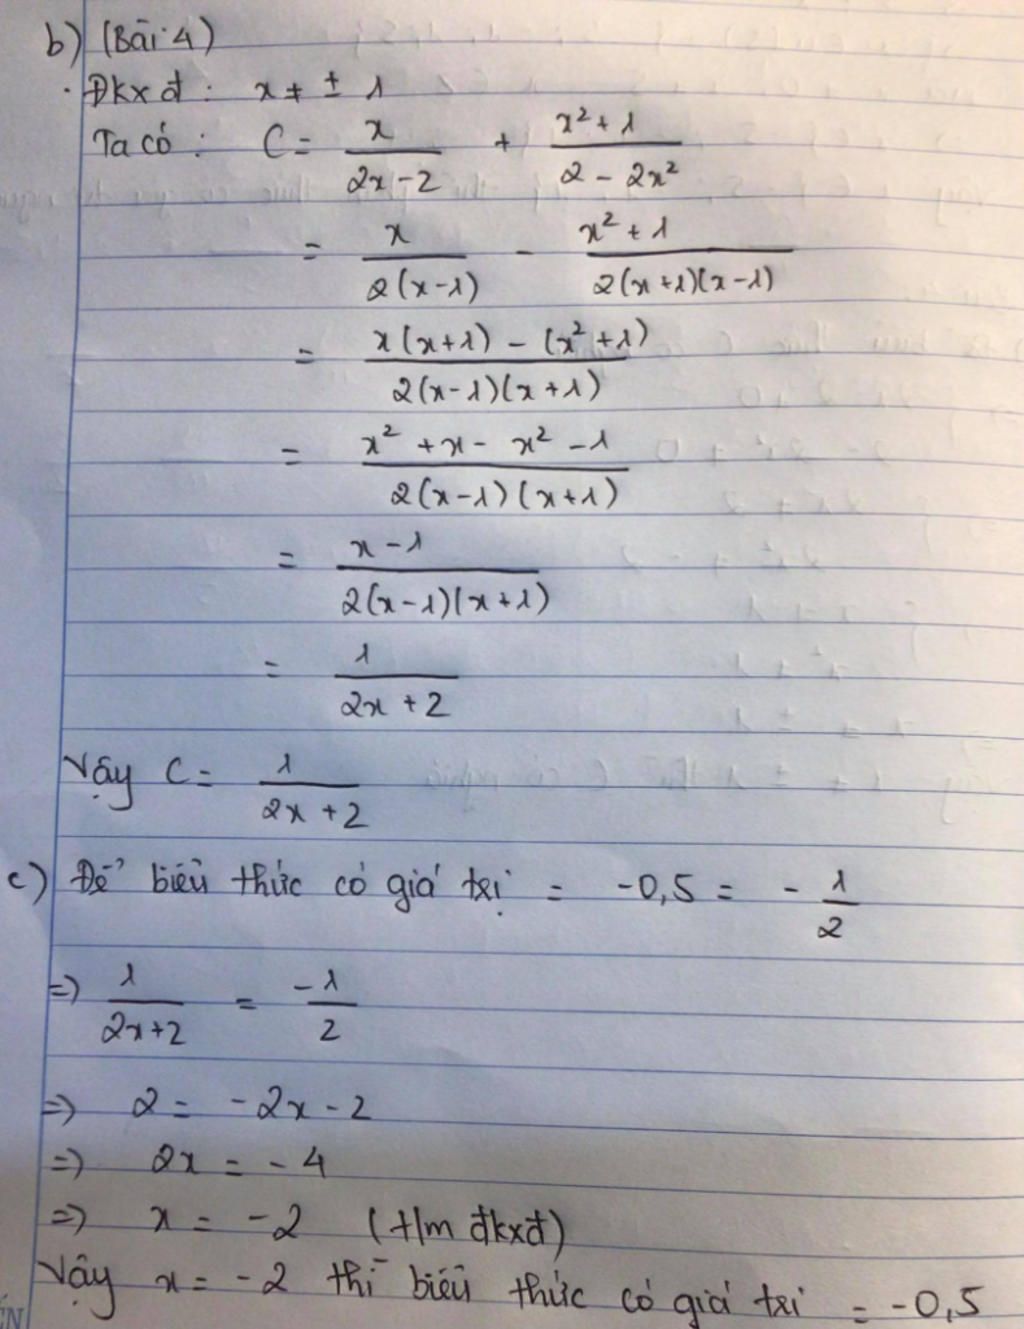 b) (Bài 4)
. Đkxđ : x ≠ ± 1
Ta có : C = x/(2x-2) + (x² + 1)/(2 - 2x²)
= x/(2(x-1)) - (x² + 1)/(2(x+1)(x-1))
= (x(x+1) - (x²+1))/(2(x-1)(x+1))
= (x² + x - x² - 1)/(2(x-1)(x+1))
= (x-1)/(2(x-1)(x+1))
= 1/(2x + 2)
Vậy C = 1/(2x + 2)
c) Để biểu thức có giá trị = -0,5 = - 1/2
=> 1/(2x+2) = -1/2
=> 2 = -2x - 2
=> 2x = - 4
=> x = -2 (t/m đkxđ)
Vậy x = -2 thì biểu thức có giá trị = -0,5